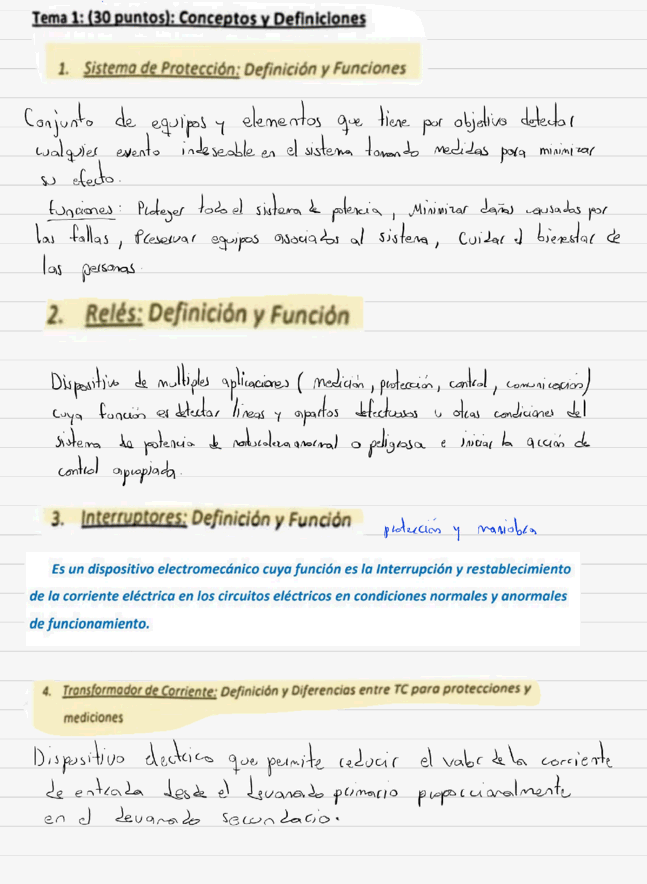 Tema 1: (30 puntos): Conceptos y Definiciones
1. Sistema de Protección: Definición y Funciones
Conjunto de equipos y elementos que tiene por objetivo detectar
cualquier evento indeseable en el sistema tomando medidas para minimizar
su efecto.
Funciones: Proteger todo el sistema de potencia, Minimizar daños causados por
las fallas, Preservar equipos asociados al sistema, Cuidar el bienestar de
las personas.
2. Relés: Definición y Función
Dispositivo de multiples aplicaciones (medición, protección, control, comunicación)
cuya función es detectar lineas y apartos defectuosos u otras condiciones del
sistema de potencia de naturaleza anormal o peligrosa e iniciar la acción de
control apropiada.
3. Interruptores: Definición y Función protección y maniobra
Es un dispositivo electromecánico cuya función es la Interrupción y restablecimiento
de la corriente eléctrica en los circuitos eléctricos en condiciones normales y anormales
de funcionamiento.
4. Transformador de Corriente: Definición y Diferencias entre TC para protecciones y
mediciones
Dispositivo electrico que permite reducir el valor de la corriente
de entrada desde el devanado primario proporcionalmente
en el devanado secundario.